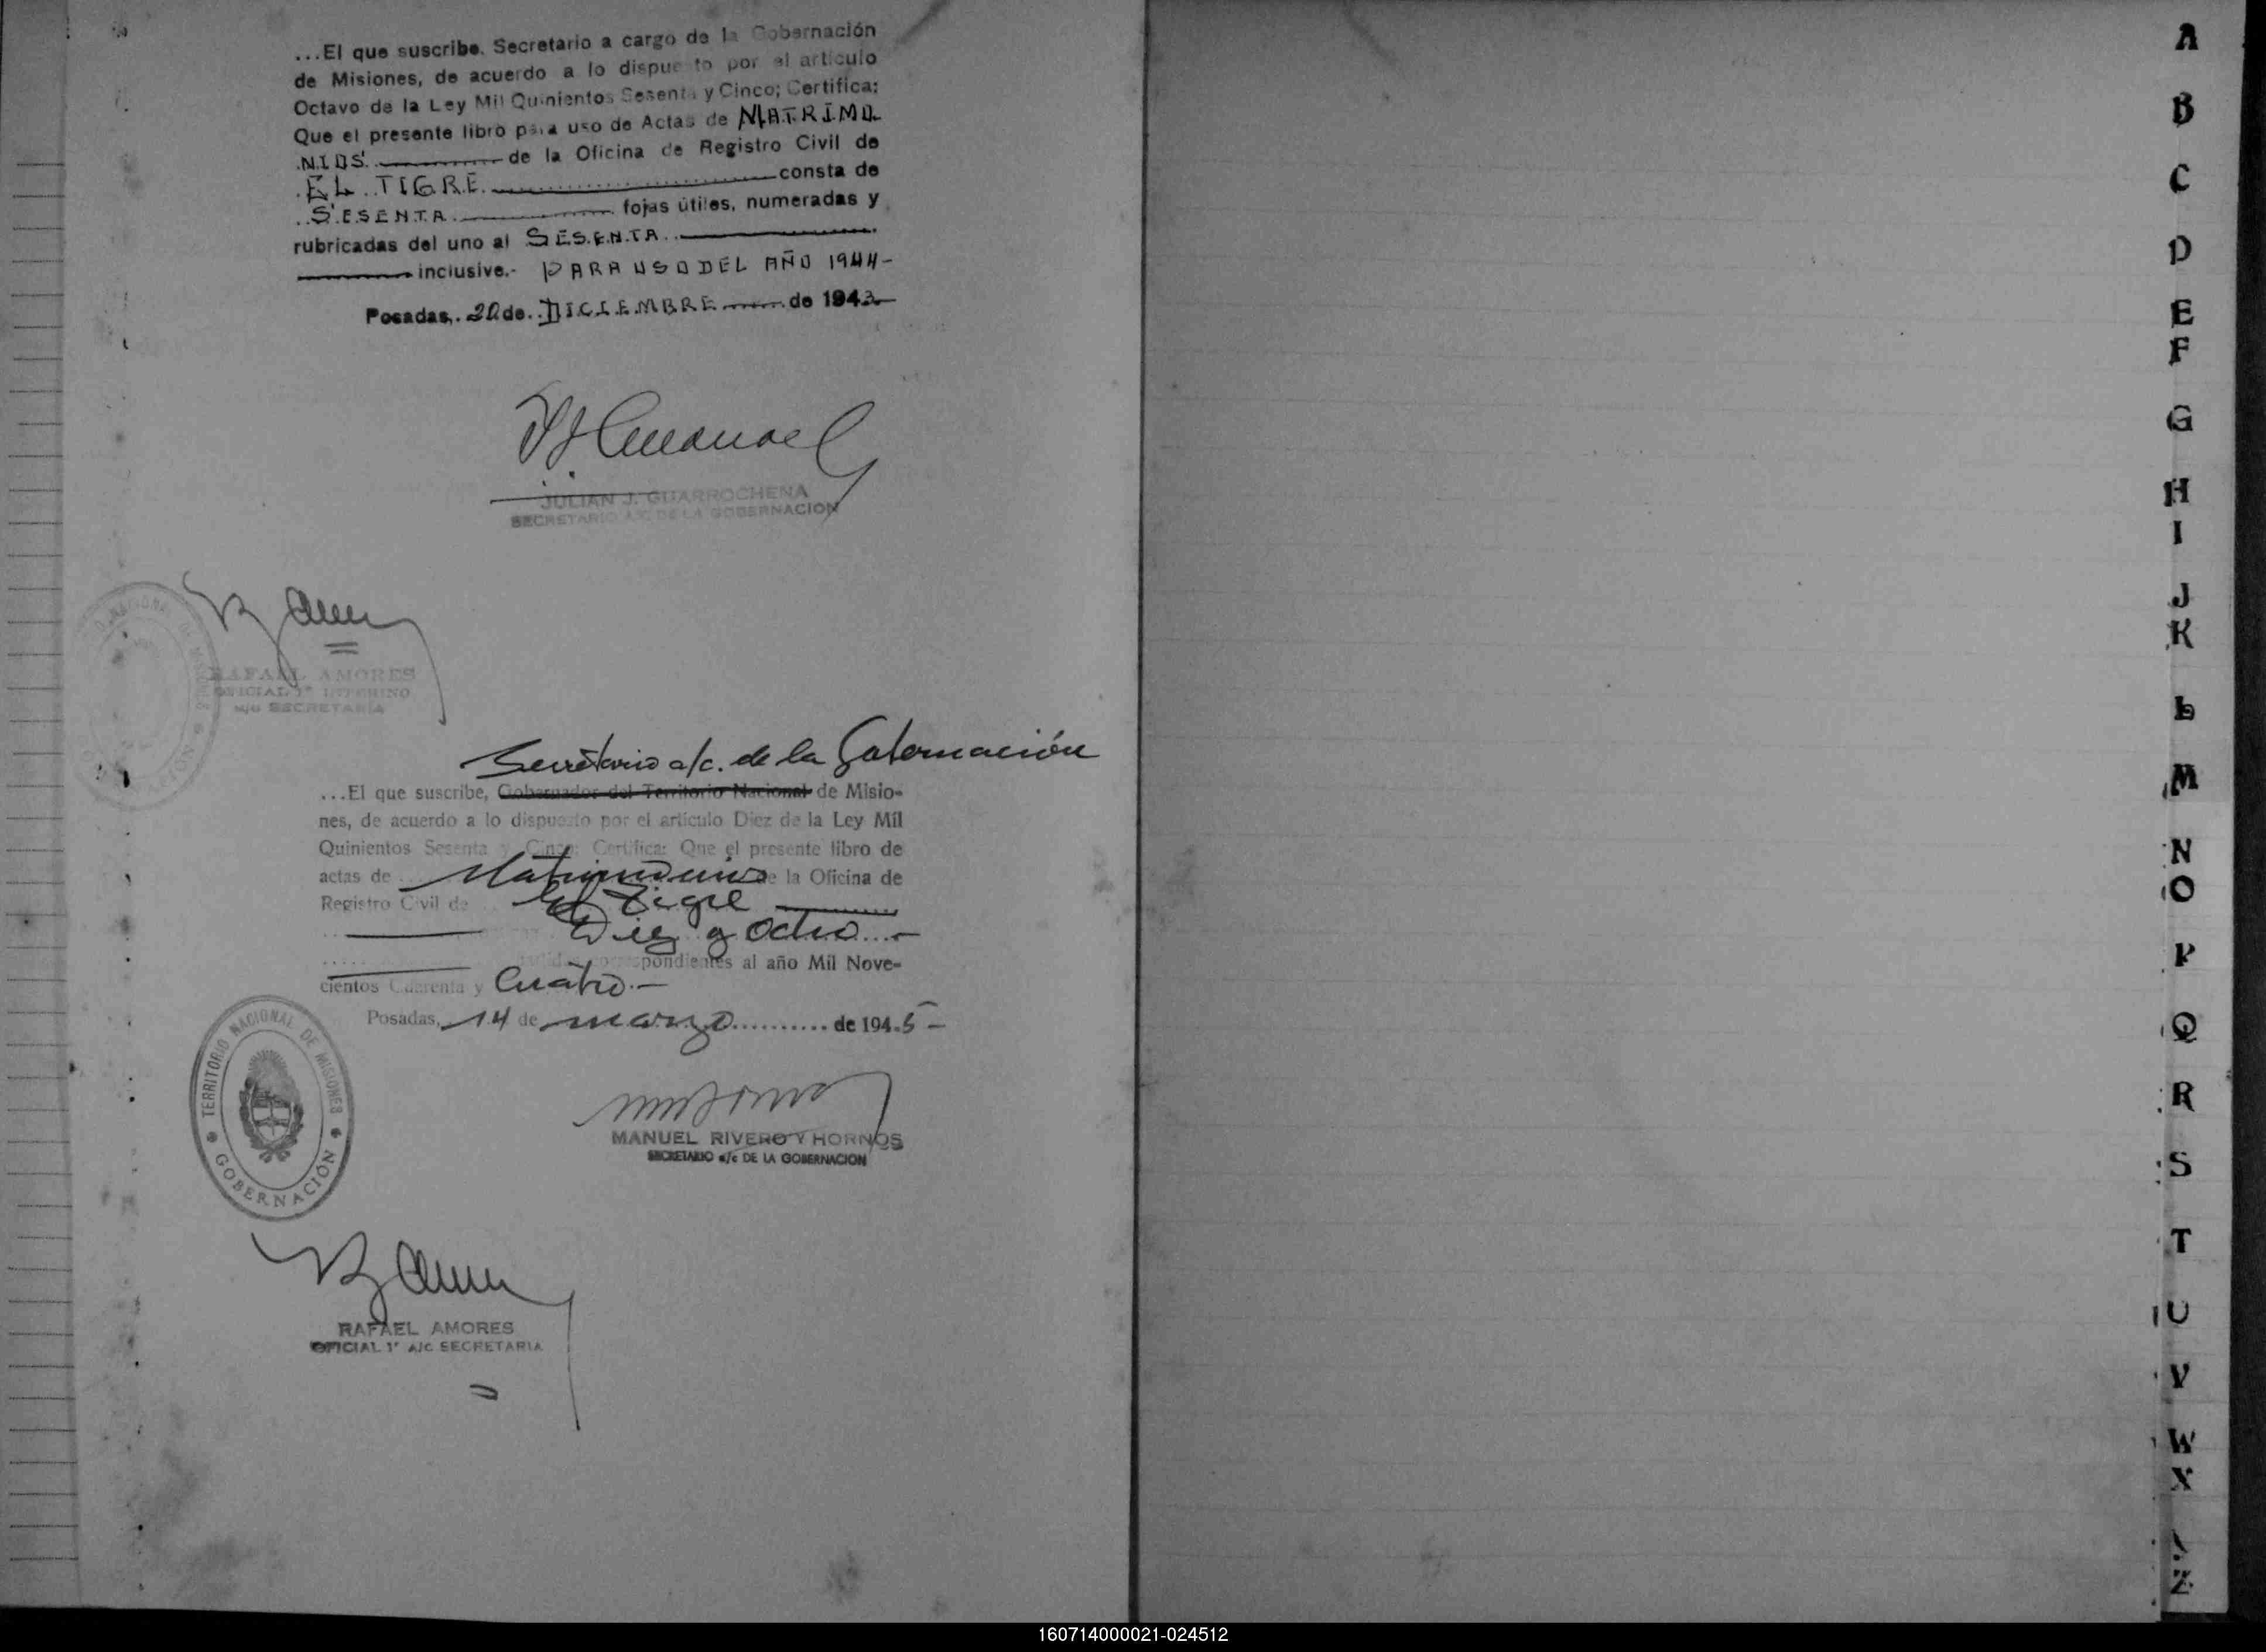 ...El que suscribe, Secretario a cargo de la Gobernación
de Misiones, de acuerdo a lo dispuesto por el artículo
Octavo de la Ley Mil Quinientos Sesenta y Cinco; Certifica:
Que el presente libro para uso de Actas de MATRIMO
NIOS de la Oficina de Registro Civil de
EL TIGRE consta de
SESENTA fojas útiles, numeradas y
rubricadas del uno al SESENTA
inclusive.- PARA USO DEL AÑO 1944-
Posadas, 20 de DICIEMBRE de 1943
JULIAN J. GUARROCHENA
SECRETARIO A/C DE LA GOBERNACION
RAFAEL AMORES
OFICIAL 1º INTERINO
SECRETARIA
Secretario a/c. de la Gobernación
...El que suscribe, Gobernador del Territorio Nacional de Misio-
nes, de acuerdo a lo dispuesto por el artículo Diez de la Ley Mil
Quinientos Sesenta y Cinco; Certifica: Que el presente libro de
actas de Matrimonios de la Oficina de
Registro Civil de El Tigre
Diez y Ocho
correspondientes al año Mil Nove-
cientos Cuarenta y Cuatro.-
Posadas, 14 de marzo de 1945-
TERRITORIO NACIONAL DE MISIONES
GOBERNACIÓN
MANUEL RIVERO Y HORNOS
SECRETARIO a/c DE LA GOBERNACION
RAFAEL AMORES
OFICIAL 1º A/C SECRETARIA
A
B
C
D
E
F
G
H
I
J
K
L
M
N
O
P
Q
R
S
T
U
V
W
X
Z
160714000021-024512